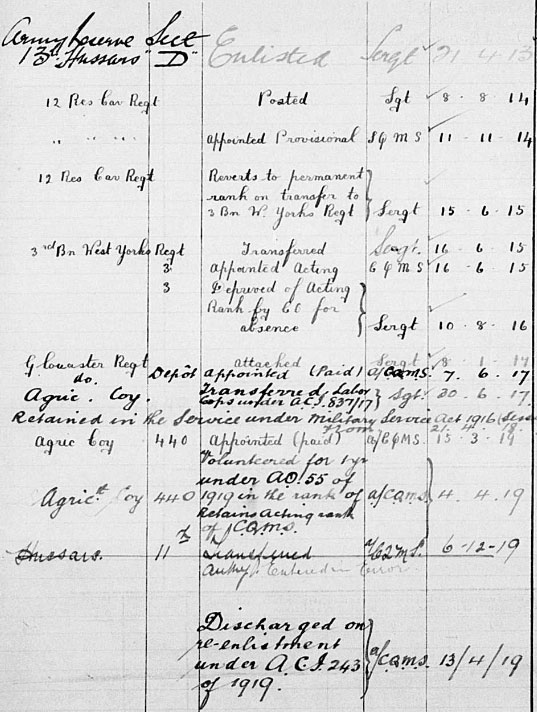 Army Reserve Sect
13th Hussars "D" Enlisted Sergt 21 4 13
12 Res Cav Regt Posted Sgt 8 - 8 - 14
" " " " Appointed Provisional S Q M S 11 - 11 - 14
12 Res Cav Regt Reverts to permanent
rank on transfer to
3 Bn W. Yorks Regt Sergt 15 - 6 - 15
3rd Bn West Yorks Regt Transferred Sergt. 16 - 6 - 15
3 Appointed Acting C Q M S 16 - 6 - 15
3 Deprived of Acting
Rank by CO for
absence Sergt 10 - 8 - 16
Gloucester Regt Attached Sergt 8 - 1 - 17
do. Depôt Appointed (Paid) a/CQMS. 7. 6. 17
Agric. Coy. Transferred Labor
Corps under A.C.I. 837/17 Sgt. 20 . 6 . 17
Retained in the Service under Military Service Act 1916
from 21. 4. 18.
Agric Coy 440 Appointed (paid) a/CQMS. 15 . 3 . 19
Volunteered for 1 yr
under AO. 55 of
Agric. Coy 440 1919 in the rank of a/CQMS. 4 . 4 . 19
Retains Acting rank
of CQMS.
Hussars. 11th Transferred a/CQMS. 6 - 12 - 19
Entered in Error.
Discharged on
re-enlistment
under A.C.I. 243 a/CQMS. 13/4/19
of 1919.